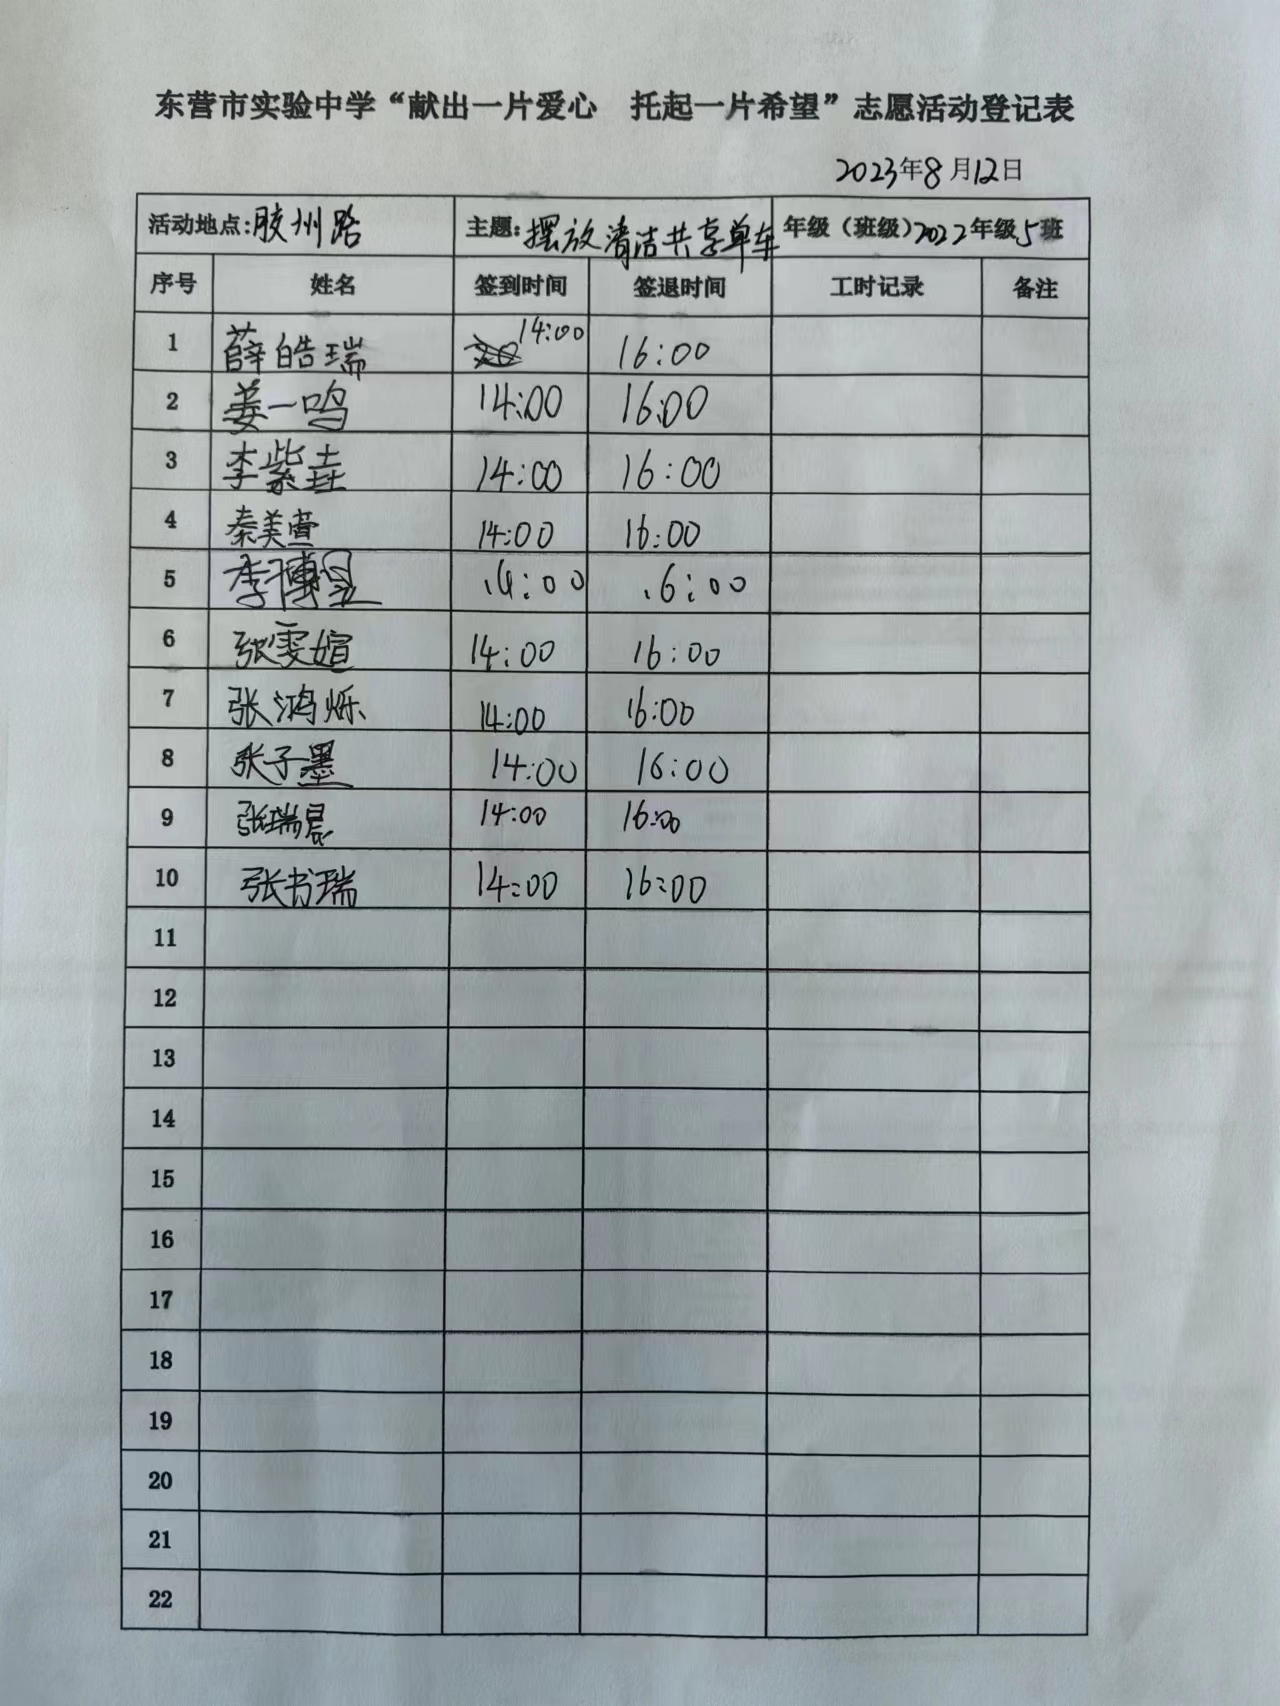 东营市实验中学“献出一片爱心 托起一片希望”志愿活动登记表
2023年8月12日
活动地点:胶州路 主题:摆放清洁共享单车 年级（班级）2022年级5班
序号 姓名 签到时间 签退时间 工时记录 备注
1 薛皓瑞 14:00 16:00
2 姜一鸣 14:00 16:00
3 李紫垚 14:00 16:00
4 秦美萱 14:00 16:00
5 李博 14:00 16:00
6 张雯媗 14:00 16:00
7 张鸿烁 14:00 16:00
8 张子墨 14:00 16:00
9 张瑞晨 14:00 16:00
10 张书瑞 14:00 16:00
11
12
13
14
15
16
17
18
19
20
21
22